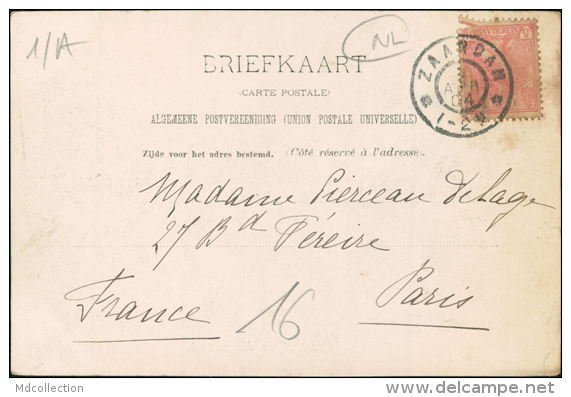 1/A
NL
BRIEFKAART
(CARTE POSTALE)
ALGEMEENE POSTVEREENIGING (UNION POSTALE UNIVERSELLE)
Zijde voor het adres bestemd. (Côté réservé à l'adresse).
ZAANDAM
APR
04
1-2
Madame Pierceau Delage
27 Bd Péreire
Paris
France
16
Mdcollection
http://www.delcampe.net